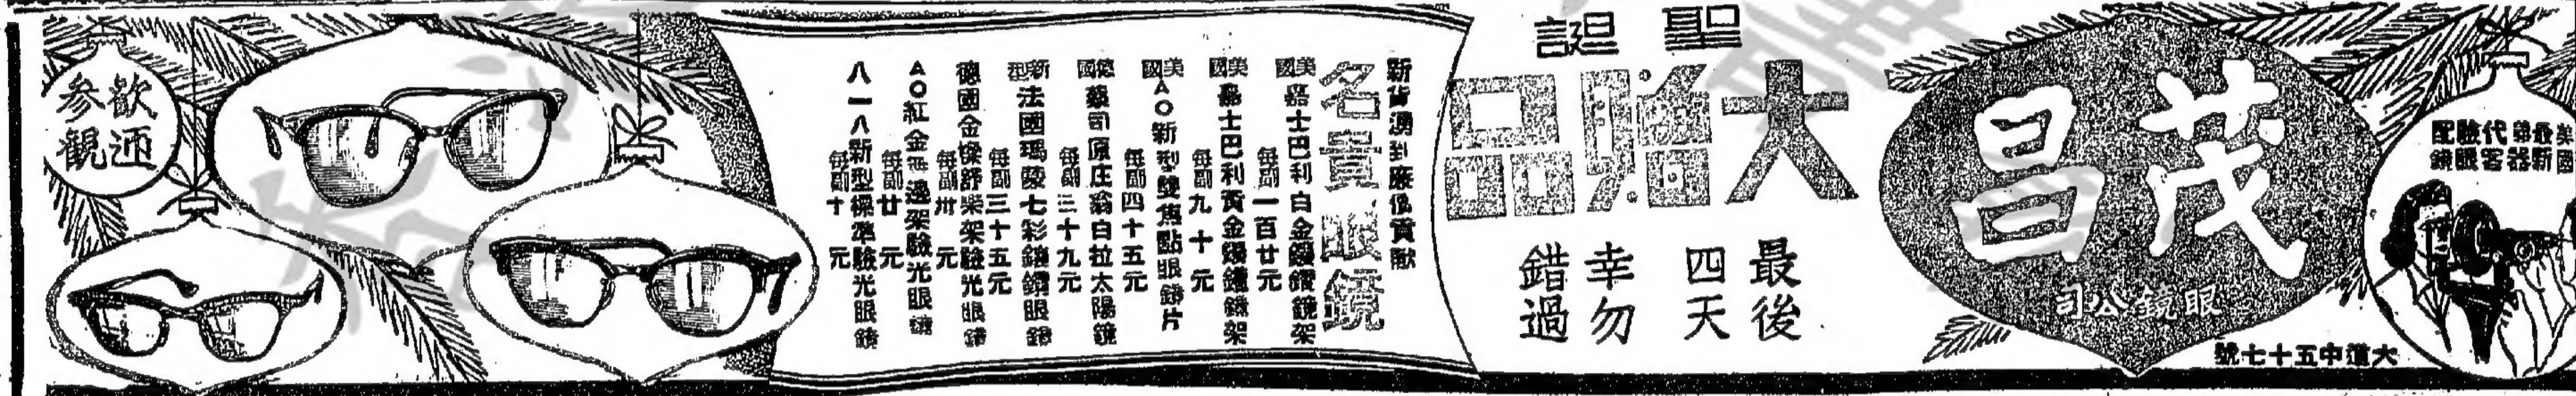 美國最新
儀器代客
驗眼配鏡
茂昌
眼鏡公司
大道中五十七號
聖誕
大贈品
最後
四天
幸勿
錯過
新貨湧到廉價貢獻
名貴眼鏡
美國嘉士巴利白金鏡架
每副一百廿元
美國嘉士巴利黃金鏡架
每副九十元
美國AO新型雙焦點眼鏡片
每副四十五元
德國蔡司原庄翁白拉太陽鏡
每副三十九元
新型法國瑪陵七彩鑲鑽眼鏡
每副三十五元
德國金樑舒柴架驗光眼鏡
每副卅元
AO紅金無邊架驗光眼鏡
每副廿元
八一八新型標準驗光眼鏡
每副十元
歡迎
參觀